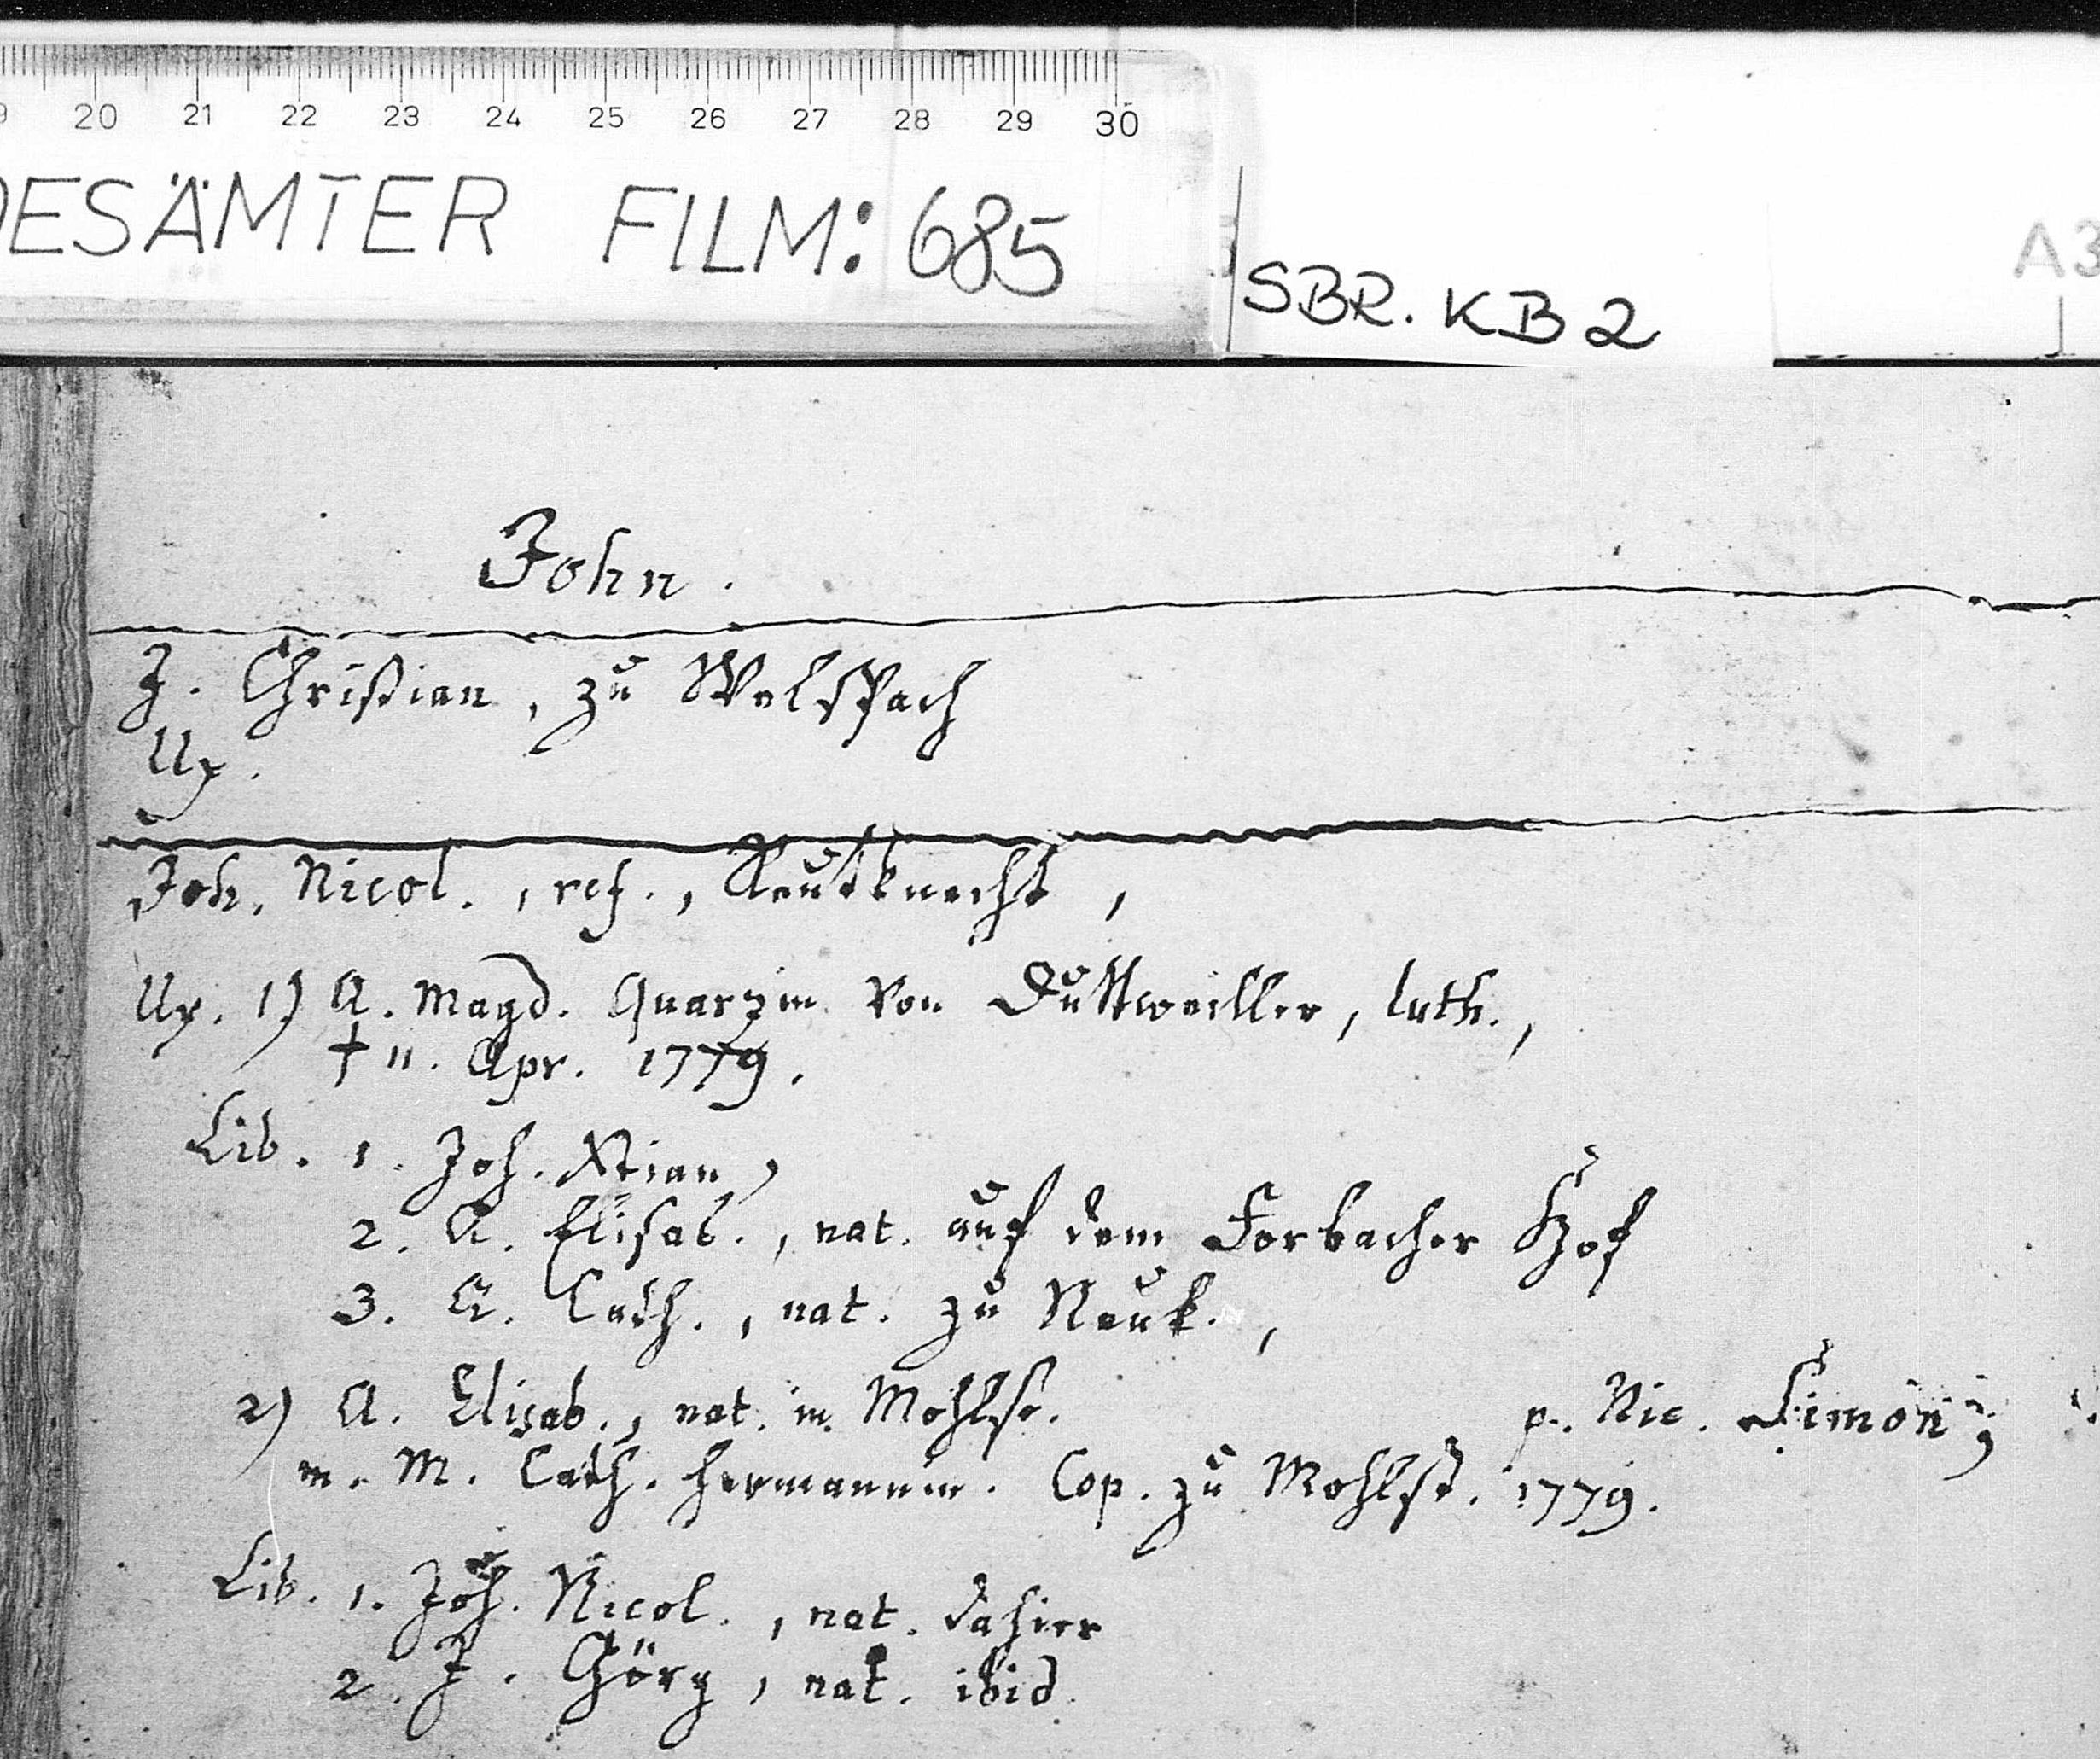 20 21 22 23 24 25 26 27 28 29 30
DESÄMTER FILM: 685
SBR. KB 2
A3
John.
J. Christian, zu Welspach
Ux.
Joh. Nicol., ref., Reutknecht,
Ux. 1) A. Magd. Quarzin von Duttweiller, luth.,
† 11. Apr. 1779.
Lib. 1. Joh. Xtian,
2. A. Elisab., nat. auf dem Forbacher Hof
3. A. Cath., nat. zu Neuk.,
2) A. Elisab., nat. in p. Nic. Simon;
m. M. Cath. Hermannin. Cop. zu 1779.
Lib. 1. Joh. Nicol., nat. dahier
2. J. Görg, nat. ibid.